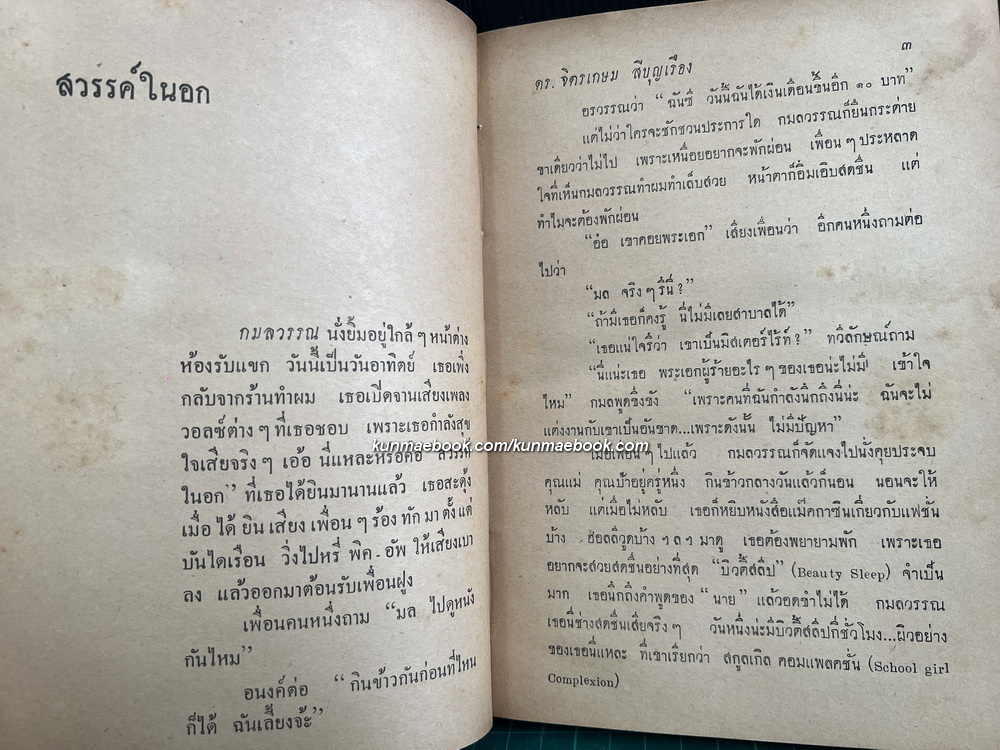 สวรรค์ในอก
กมลวรรณ นั่งยิ้มอยู่ใกล้ ๆ หน้าต่าง
ห้องรับแขก วันนี้เป็นวันอาทิตย์ เธอเพิ่ง
กลับจากร้านทำผม เธอเปิดจานเสียงเพลง
วอลซ์ต่าง ๆ ที่เธอชอบ เพราะเธอกำลังสุข
ใจเสียจริง ๆ เออ้ นี่แหละหรือคือ “สวรรค์
ในอก” ที่เธอได้ยินมานานแล้ว เธอสะดุ้ง
เมื่อ ได้ ยิน เสียง เพื่อน ๆ ร้อง ทัก มา ตั้ง แต่
บันไดเรือน วิ่งไปหรี่ พิค-อัพ ให้เสียงเบา
ลง แล้วออกมาต้อนรับเพื่อนฝูง
เพื่อนคนหนึ่งถาม “มล ไปดูหนัง
กันไหม”
อนงค์ต่อ “กินข้าวกันก่อนที่ไหน
ก็ได้ ฉันเลี้ยงจ้ะ”
ดร. จิตรเกษม สีบุญเรือง ๓
อรวรรณว่า “ฉันซี วันนี้ฉันได้เงินเดือนขึ้นอีก ๑๐ บาท”
แต่ไม่ว่าใครจะชักชวนประการใด กมลวรรณก็ยืนกระต่าย
ขาเดียวว่าไม่ไป เพราะเหนื่อยอยากจะพักผ่อน เพื่อน ๆ ประหลาด
ใจที่เห็นกมลวรรณทำผมทำเล็บสวย หน้าตาก็อิ่มเอิบสดชื่น แต่
ทำไมจะต้องพักผ่อน
“อ๋อ เขาคอยพระเอก” เสียงเพื่อนว่า อีกคนหนึ่งถามต่อ
ไปว่า
“มล จริง ๆ รึนี่ ?”
“ถ้ามีเธอก็คงรู้ นี่ไม่มีเลยสาบาลได้”
“เธอแน่ใจรึว่า เขาเป็นมิสเตอร์ไร้ท์ ?” ทวีลักษณ์ถาม
“นี่แน่ะเธอ พระเอกผู้ร้ายอะไร ๆ ของเธอน่ะไม่มี เข้าใจ
ไหม” กมลพูดขึงขัง “เพราะคนที่ฉันกำลังนึกถึงนี่น่ะ ฉันจะไม่
แต่งงานกับเขาเป็นอันขาด...เพราะดังนั้น ไม่มีปัญหา”
เมื่อเพื่อน ๆ ไปแล้ว กมลวรรณก็จัดแจงไปนั่งคุยประจบ
คุณแม่ คุณป้าอยู่ครู่หนึ่ง กินข้าวกลางวันแล้วก็นอน นอนจะให้
หลับ แต่เมื่อไม่หลับ เธอก็หยิบหนังสือแม๊คกาซินเกี่ยวกับแฟชั่น
บ้าง ฮอลลีวูดบ้าง ฯลฯ มาดู เธอต้องพยายามพัก เพราะเธอ
อยากจะสวยสดชื่นอย่างที่สุด “บิวตี้สลีป” (Beauty Sleep) จำเป็น
มาก เธอนึกถึงคำพูดของ “นาย” แล้วอดขำไม่ได้ กมลวรรณ
เธอนี่ช่างสดชื่นเสียจริง ๆ วันหนึ่งน่ะมีบิวตี้สลีปกี่ชั่วโมง...ผิวอย่าง
ของเธอนี่แหละ ที่เขาเรียกว่า สกูลเกิล คอมแพลคชั่น (School girl
Complexion)
kunmaebook.com/kunmaebook.com